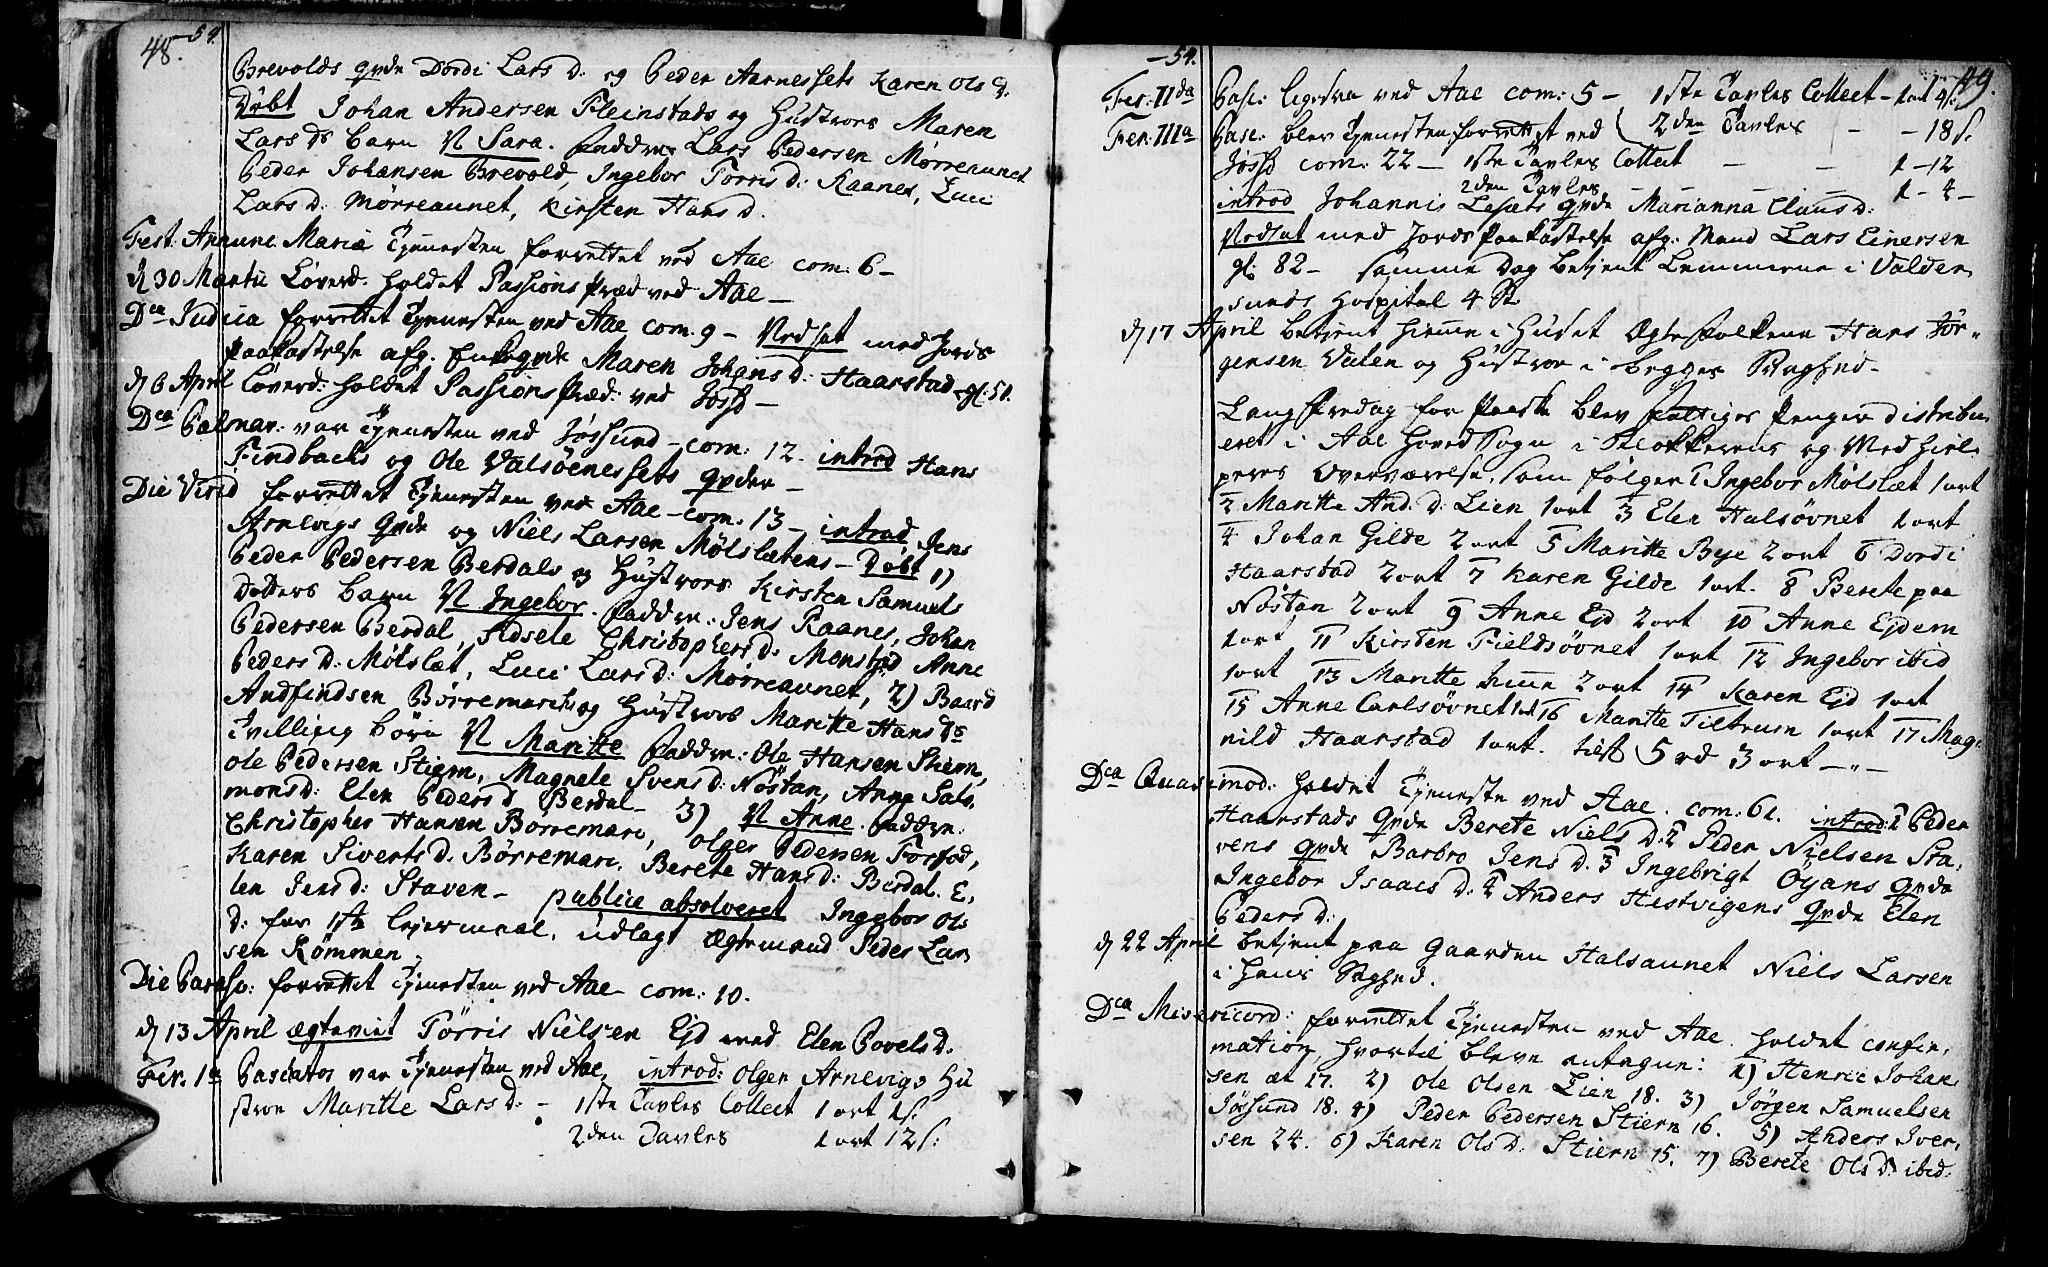 48.
54.
Brevolds qvde Dordi Lars d: og Peder Aarnessets Karen Ols d:
Døbt Johan Andersen Fleinstads og Hustroes Maren
Lars ds barn N Sara. Faddre Lars Pedersen Mørreaunet
Peder Johansen Brevold, Ingebor Torris d: Raanes, Luci
Lars d: Mørreaunet, Kirsten Hans d.
Fest: Annunc Mariæ Tjenesten forrettet ved Aae com: 6 –
d 30 Martii Løverd: holdet Passions Præd ved Aae –
Dca Judica forrettet Tjenesten ved Aae com. 9 – Nedsat med Jords
Paakastelse afg. Enkeqvde Maren Johans d: Haarstad gl: 51.
d 6 April Løverd: holdet Passions Præd: ved Jøss –
Dca Palmar: var Tjenesten ved Jøssund – com: 12. introd Hans
Findbachs og Ole Valsøenessets qvder –
Die Virid forrettet Tjenesten ved Aae – com: 13 – introd Jens
Arnevigs Qvde og Niels Larsen Mølslætens – Døbt 1)
Peder Pedersen Berdals og Hustroes Kirsten Samuels
Dotters barn N Ingebor. Faddre: Jens Raanes, Johan
Pedersen Berdal, Sidsele Christophers d: Monstad Anne
Peders d: Mølslæt, Luci Lars d: Mørreaunet, 2) Baard
Andfindsen Børremarchs og Hustroes Maritte Hans ds
Tvilling børn N Maritte Faddre: Ole Hansen Stiern,
Ole Pedersen Stiern, Magnele Svens d: Nøstan, Anne Sals,
mons d: Elen Peders d Berdal – 3) N Anne. Faddre:
Christopher Hansen Børremarc, Olger Pedersen Forfod,
Karen Siverts d. Børremarc, Berete Hans d: Berdal. E,
len Jens d: Staven – publice absolveret Ingebor Ols
d: for 1ste lejermaal, udlagt Ægtemand Peder Lar
sen Rømmen
Die Parasc: forrettet Tjenesten ved Aae com: 10.
d 13 April ægteviet Tørris Nielsen Ejd med Elen Povels d.
Fer. 1a Paschatos var Tjenesten ved Aae, introd: Olger Arnevigs Hu
stroe Maritte Lars d: – 1ste Tavles Collect 1 ort 1s:
2den Tavles 1 ort 12 s:
– 54.
49.
Fer: IIda Pasc: ligesaa ved Aae com: 5 – 1ste Tavles Collect – 1 ort 4 s:
Fer: IIIa Pasc: blev Tjenesten forrettet ved 2den Tavles – – 18 s.
Jøss com: 22 – 1ste Tavles Collect – – 1 – 12
2den Tavles – – – 1 – 4 –
introd Johannis Lesæts qvde Marianna Claus d:
Nedsat med Jords Paakastelse afg: Mand Lars Einersen
gl. 82 – samme Dag betjent Lemmerne i Valder,
sunds Hospital 4 St.
d 17 April betjent hieme i Huset Ægtefolkene Hans Jør-
gensen Valen og Hustroe i begges Svaghed –
Langfredag for Paaske blev fattiges Penge distribu
eret i Aae Hoved Sogn i Klokkerens og Medhiel
peres Overværelse, som følger 1 Ingebor Mølslæt 1 ort
2 Maritte And. d: Lien 1 ort 3 Elen Halsøvnet 1 ort
4 Johan Gilde 2 ort 5 Maritte Bye 2 ort 6 Dordi
Haarstad 2 ort 7 Karen Gilde 1 ort. 8 Berete paa
Nøstan 2 ort 9 Anne Ejd 2 ort 10 Anne Ejdem
1 ort 11 Kirsten Fieldsøvnet 1 ort 12 Ingebor ibid
1 ort 13 Maritte 2 ort 14 Karen Ejd 1 ort
15 Anne Carlsøvnet 1 ort 16 Maritte Tiltrum 1 ort 17 Mag,
nild Haarstad 1 ort. 5 rd 3 ort – „ –
Dca Quasimod: holdet Tjeneste ved Aae. com: 61. introd: 1 Peder
Haarstads Qvde Berete Niels d: 2 Peder Nielsen Sta,
vens qvde Barbro Jens d. 3 Ingebrigt Oyans qvde
Ingebor Isaacs d: 4 Anders Hestvigens Qvde Elen
Peders d:
d 22 April betjent paa Gaarden Halsaunet Niels Larsen
i hans Svaghed.
Dca Misericord: forrettet Tjenesten ved Aae. holdet confir,
mation, hvortil bleve antagne: 1) Henric Johan
sen æt 17. 2) Ole Olsen Lien 18. 3) Jørgen Samuelsen
Jøssund 18. 4) Peder Pedersen Stiern 16. 5) Anders Iver,
sen 24. 6) Karen Ols d: Stiern 15. 7) Berete Ols d: ibid: